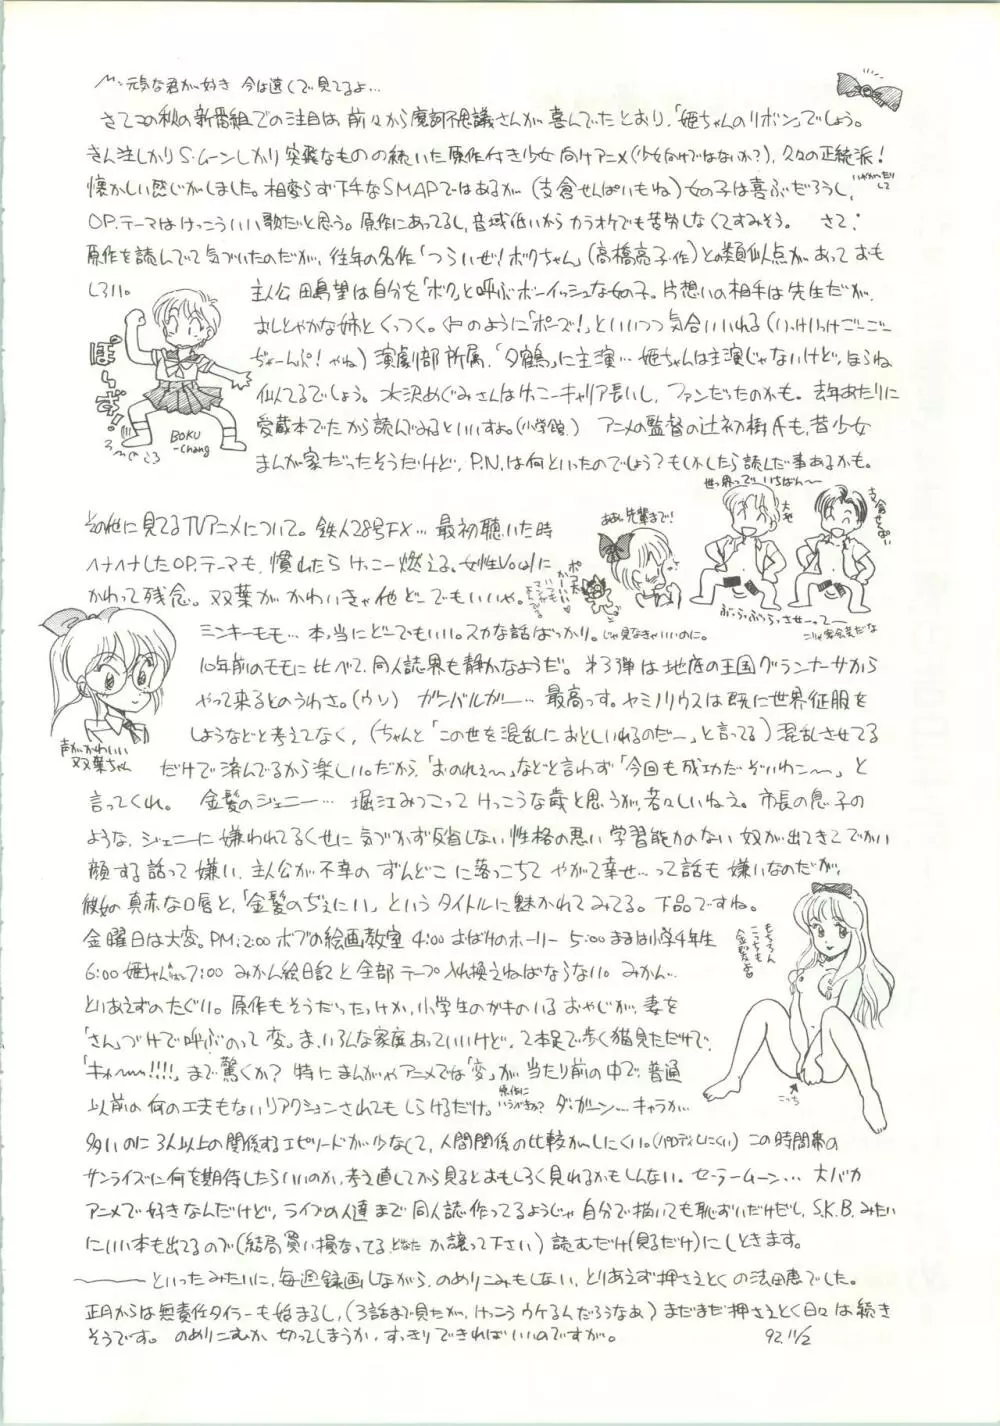 〽元気な君が好き 今は遠くで見てるよ…
さてこの秋の新番組での注目は、前々から摩訶不思議さんが喜んでたとおり、「姫ちゃんのリボン」でしょう。
きん注しかりS・ムーンしかり突飛なものの続いた原作付き少女向けアニメ(少女向けではないか?)、久々の正統派!
懐かしい感じがしました。相変らず下手なSMAPではあるが(支倉せんぱいもね)女の子は喜ぶだろうし、
OP.テーマはけっこういい歌だと思う。原作にあってるし、音域低いからカラオケでも苦労しなくてすみそう。 さて、
原作を読んでて気づいたのだが、往年の名作「つらいぜ!ボクちゃん」(高橋亮子・作)との類似点があっておも
しろい。
主人公田島望は自分を「ボク」と呼ぶボーイッシュな女の子。片想いの相手は先生だが、
おしとやかな姉とくっつく。のように「ポーズ!」といいつつ気合いいれる(いけいけごーごー
ぢゃーんぷ!やね)演劇部所属、「夕鶴」に主演…姫ちゃんは主演じゃないけど、ほらね
似てるでしょう。水沢めぐみさんはけっこーキャリア長いし、ファンだったのかも。去年あたりに
愛蔵本でたから読んでみるといいすよ。(小学館) アニメの監督の辻初樹氏も、昔少女
まんが家だったそうだけど、P.N.は何といったのでしょう?もしかしたら読んだ事あるかも。
ぽーずぢ!
BOKU
-chang
世っ界ってでいちばん〜
大地
支倉せんぱい
ああん先輩まで!
ポコ太
ぶっちぶっちっさせーってー
その他に見てるTVアニメについて。鉄人28号FX… 最初聴いた時
ヘナヘナしたOP.テーマも、慣れたらけっこー燃える。女性Vo.に
かわって残念。双葉がかわいきゃ他どーでもいいや。
ミンキーモモ…本当にどーでもいい。スカな話ばっかり。じゃ見なきゃいいのに。
10年前のモモに比べて、同人誌界も静かなようだ。第3弾は地底の王国グランナーサから
やって来るとのうわさ。(ウソ) ガンバルガー… 最高っす。ヤミノリウスは既に世界征服を
しようなどと考えてなく、(ちゃんと「この世を混乱におとしいれるのだー」と言ってる)混乱させてる
だけで済んでるから楽しい。だから「おのれぇ〜」などと言わず「今回も成功だぞいわこん〜」と
言ってくれ。 金髪のジェニー… 堀江みつこってけっこうな歳と思うが、若々しいねえ。市長の息子の
ような、ジェニーに嫌われてるくせに気づかず反省しない性格の悪い学習能力のない奴が出てきてでかい
顔する話って嫌い。主人公が不幸のずんどこに落っこちてやがて幸せ…って話も嫌いなのだが、
彼女の真赤な口唇と、「金髪のぢぇにい」というタイトルに魅かれてみてる。下品ですね。
声がかわいい
双葉ちゃん
金曜日は大変。PM:2:00 ボブの絵画教室 4:00 おばけのホーリー 5:00 まるは小学4年生
6:00 姫ちゃん 7:00 みかん絵日記と全部テープ入れ換えねばならない。みかん…
とりあえずのたぐい。原作もそうだったっけか、小学生のガキのいるおやじが、妻を
「さん」づけで呼ぶのって変。ま、いろんな家庭あっていいけど、2本足で歩く猫見ただけで、
「キャー〜!!!!」まで驚くか? 特にまんがやアニメでは「変」が当たり前の中で、普通
以前の何の工夫もないリアクションされてもしらけるだけ。ダ・ガーン…キャラが
多いのに3人以上の関係するエピソードが少なくて、人間関係の比較がしにくい。(パロディしにくい) この時間帯の
サンライズに何を期待したらいいのか、考え直してから見るとおもしろく見れるかもしんない。セーラームーン… 大バカ
アニメで好きなんだけど、ライブの人達まで同人誌作ってるようじゃ自分で描いても恥ずいだけだし、S.K.B.みたい
にいい本も出てるので(結局買い損なってる、どなたか譲って下さい)読むだけ(見るだけ)にしときます。
こっち
————といったみたいに、毎週録画しながら、のめりこみもしない、とりあえず押さえとくの法田恵でした。
正月からは無責任タイラーも始まるし、(3話まで見たが、けっこうウケるんだろうなあ)まだまだ押さえとく日々は続き
そうです。 のめりこむか切ってしまうか、すっきりできればいいのですが。 92.11/2